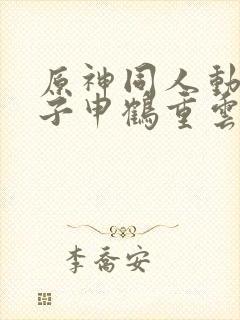 原神同人動
子申鶴重雲
李喬安